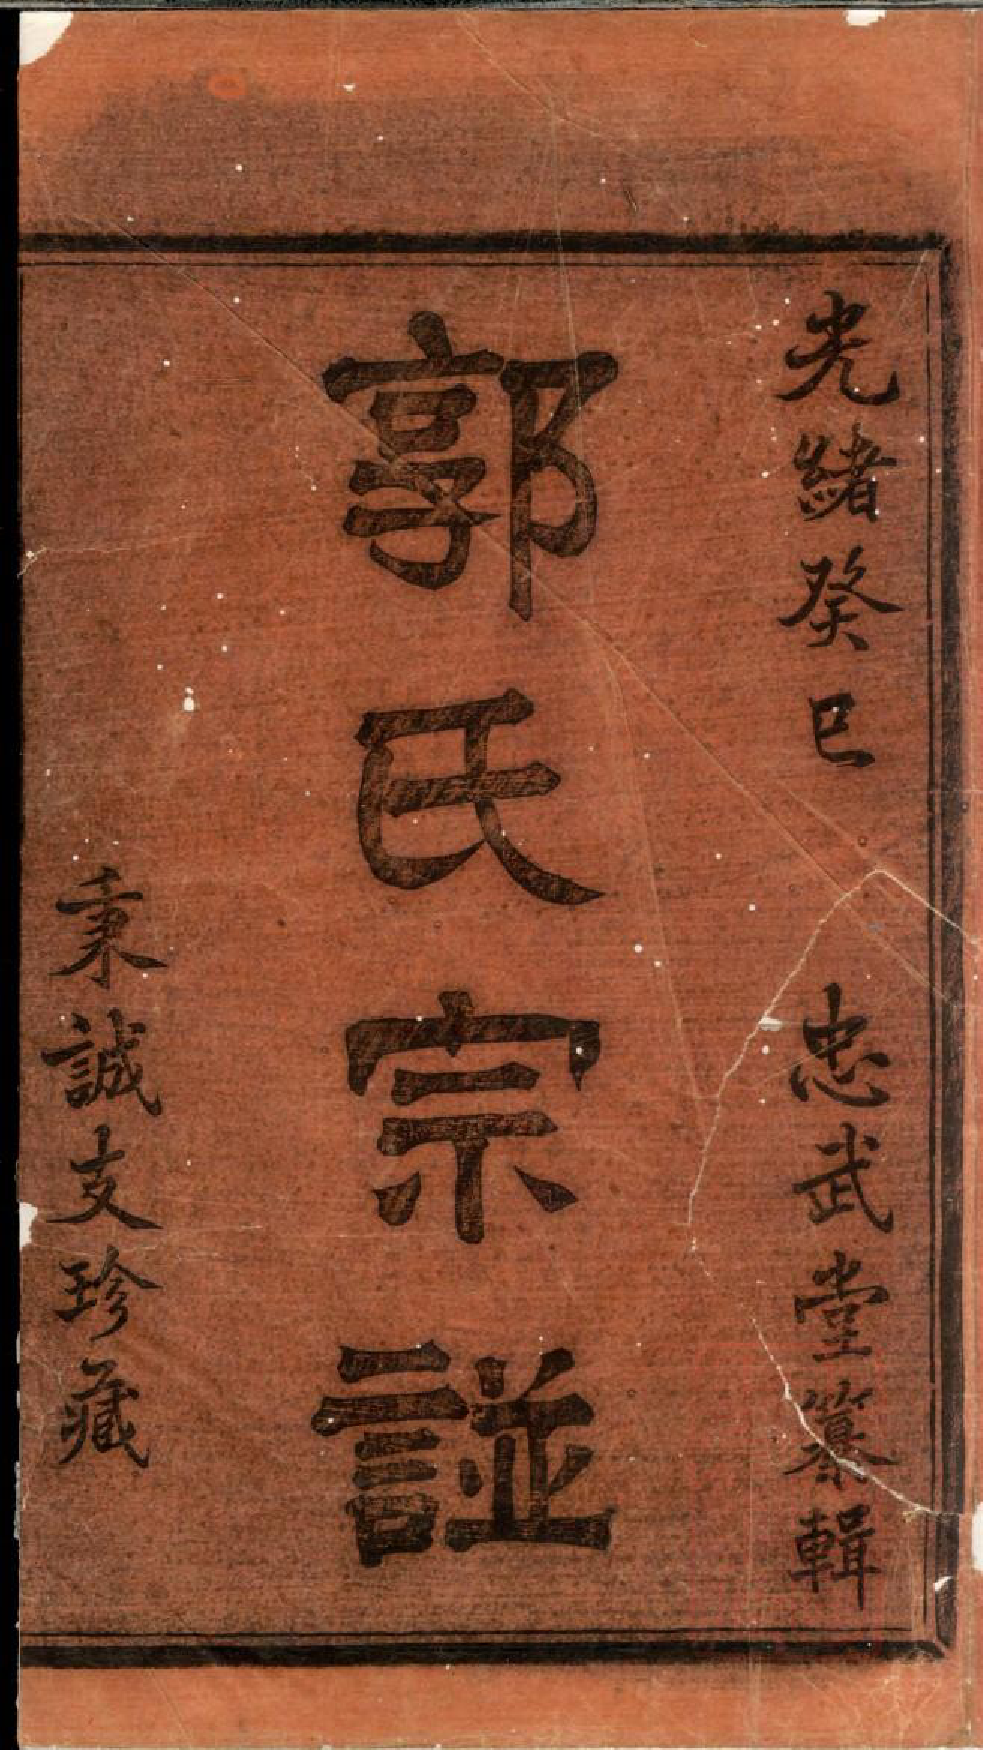 光緒癸巳 忠武堂纂輯
郭氏宗譜
秉誠支珍藏